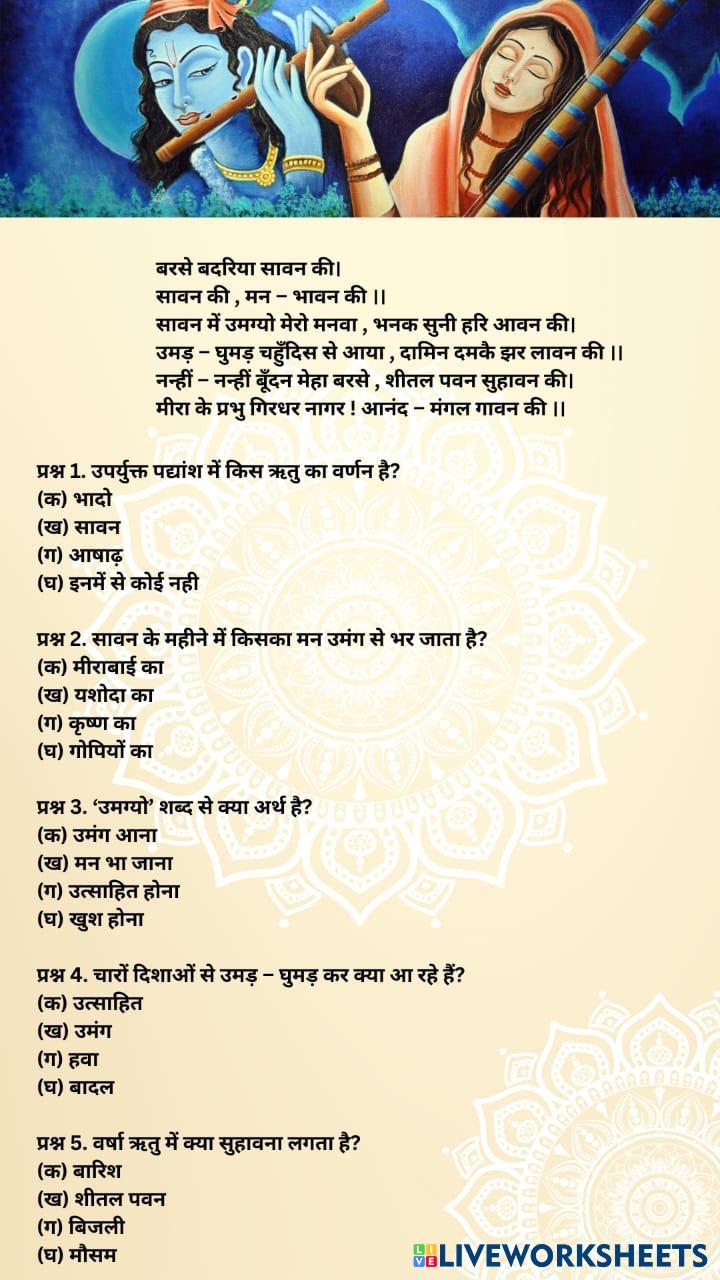 बरसे बदरिया सावन की।
सावन की , मन – भावन की ।।
सावन में उमग्यो मेरो मनवा , भनक सुनी हरि आवन की।
उमड़ – घुमड़ चहुँदिस से आया , दामिन दमकै झर लावन की ।।
नन्हीं – नन्हीं बूँदन मेहा बरसे , शीतल पवन सुहावन की।
मीरा के प्रभु गिरधर नागर ! आनंद – मंगल गावन की ।।
प्रश्न 1. उपर्युक्त पद्यांश में किस ऋतु का वर्णन है?
(क) भादो
(ख) सावन
(ग) आषाढ़
(घ) इनमें से कोई नही
प्रश्न 2. सावन के महीने में किसका मन उमंग से भर जाता है?
(क) मीराबाई का
(ख) यशोदा का
(ग) कृष्ण का
(घ) गोपियों का
प्रश्न 3. ‘उमग्यो’ शब्द से क्या अर्थ है?
(क) उमंग आना
(ख) मन भा जाना
(ग) उत्साहित होना
(घ) खुश होना
प्रश्न 4. चारों दिशाओं से उमड़ – घुमड़ कर क्या आ रहे हैं?
(क) उत्साहित
(ख) उमंग
(ग) हवा
(घ) बादल
प्रश्न 5. वर्षा ऋतु में क्या सुहावना लगता है?
(क) बारिश
(ख) शीतल पवन
(ग) बिजली
(घ) मौसम
LIVE LIVEWORKSHEETS